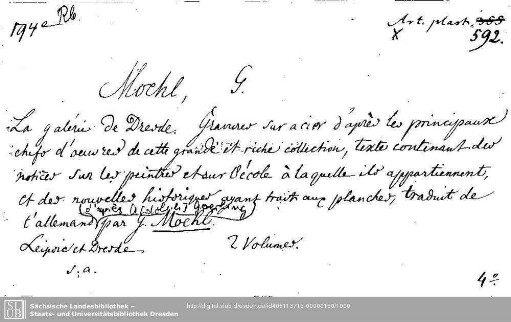 194e Rb.
Art. plast. 388
X 592.
Mochl, G.
La galérie de Dresde. Gravures sur acier d'après les principaux
chefs d'oeuvres de cette grande et riche collection, texte contenant des
notices sur les peintres et sur l'école à laquelle ils appartiennent,
et des nouvelles historiques ayant trait aux planches, traduit de
(d'après Adolphe Goerling)
l'allemand par G. Mochl.
Leipsic et Dresde 2 Volumes.
s. a.
4°
SLUB
Sächsische Landesbibliothek –
Staats- und Universitätsbibliothek Dresden